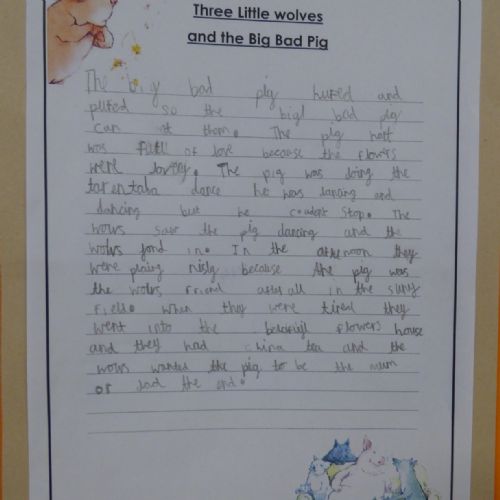 Three Little wolves
and the Big Bad Pig
The big bad pig hufed and
pufed so the bigl bad pig
can at them. The pig hart
was full of love because the flowers
were lovey. The pig was doing the
tarentaba dance he was dancing and
dancing but he coudent stop. The
wolvs saw the pig dancing and the
wolvs jond in. In the afternoon they
were plaing nisly because the pig was
the wolvs friend after all in the suny
field. when they were tired they
went into the flowers house
and they had china tea and the
wolvs wanted the pig to be the mum
or dad the end.